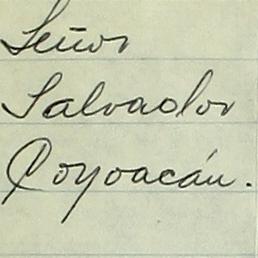 Señor
Salvador
Coyoacán.